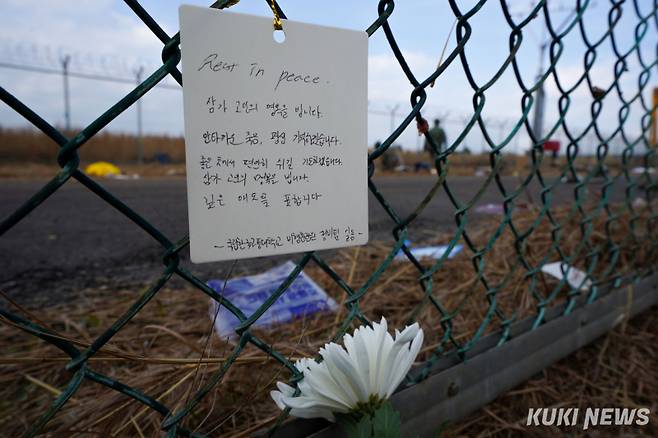 Rest in peace.
삼가 고인의 명복을 빕니다.
안타까운 죽음, 평생 기억하겠습니다.
좋은 곳에서 편안히 쉬길 기도하겠습니다.
삼가 고인의 명복을 빕니다.
깊은 애도를 표합니다
- 국립한국교통대학교 비행훈련원 일동 -
KUKI NEWS